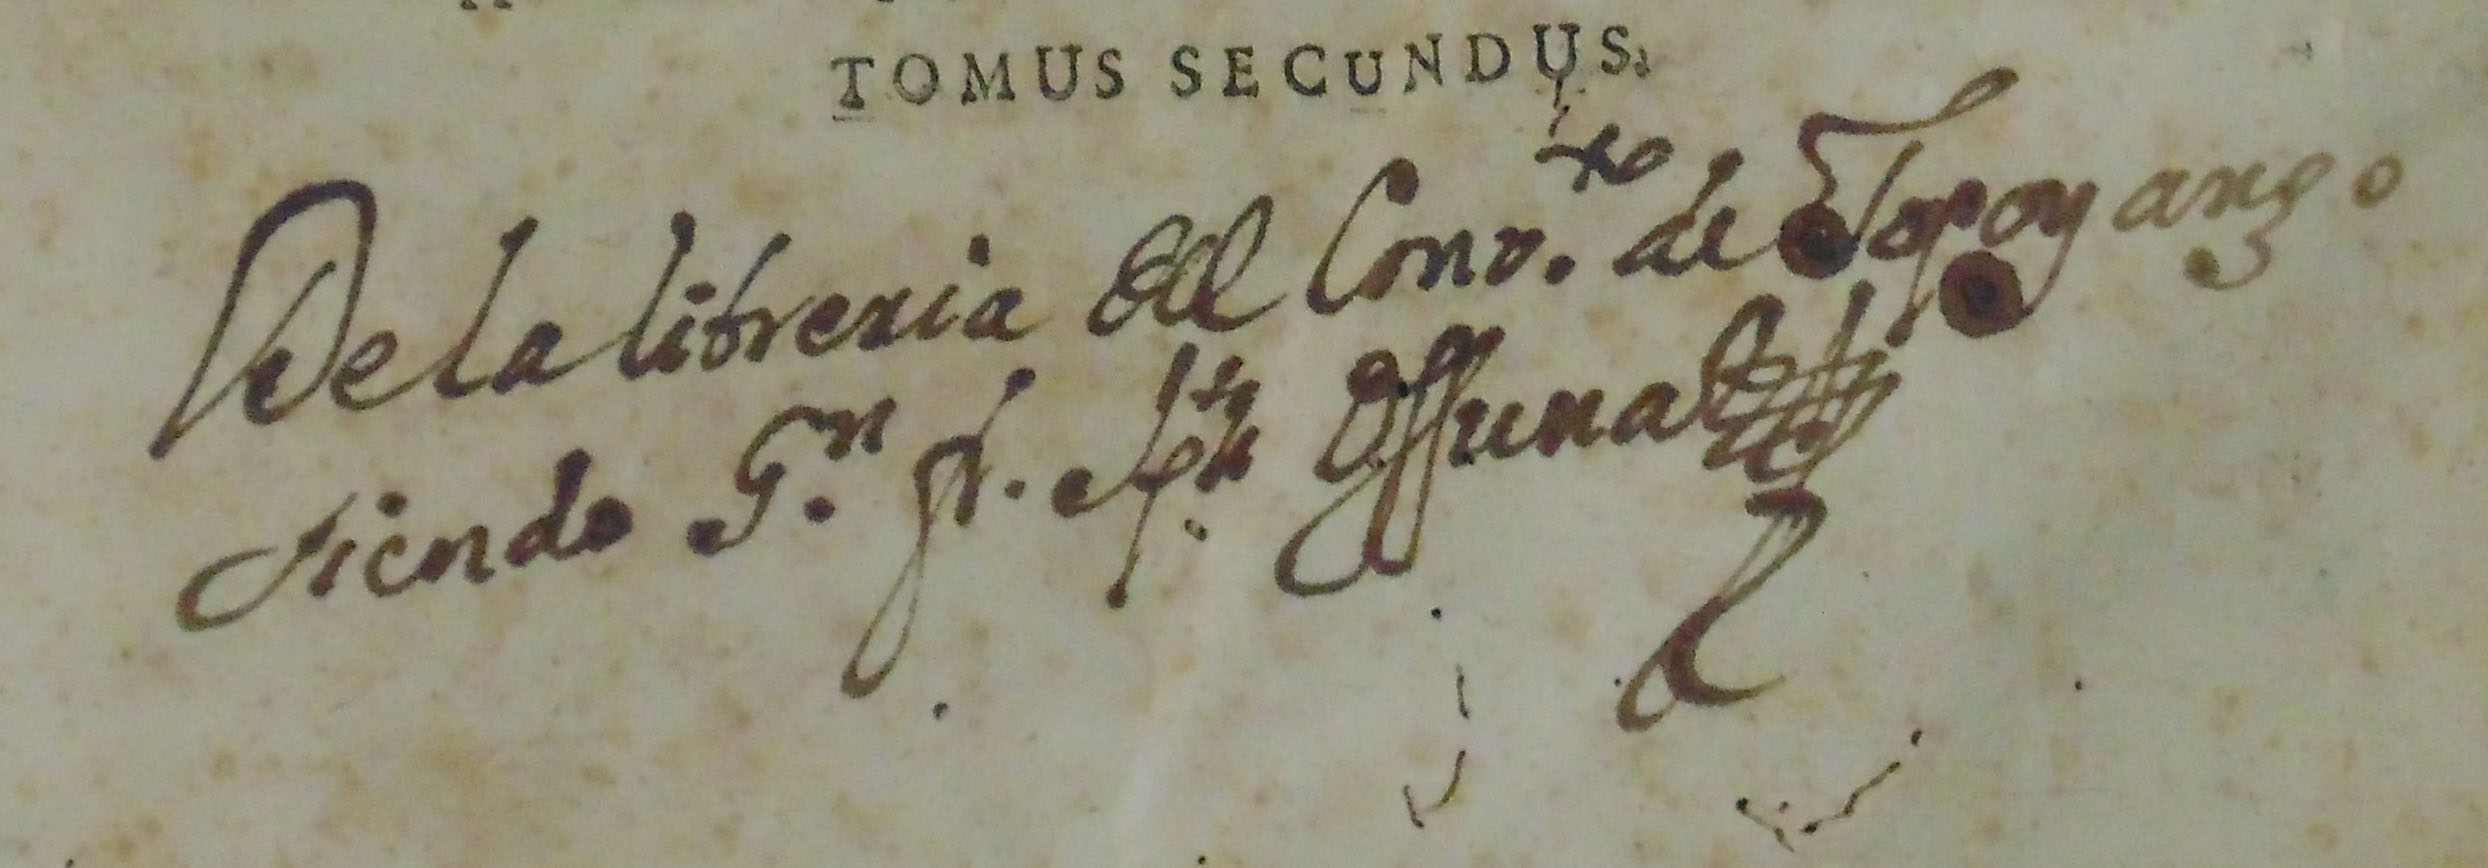 TOMUS SECUNDUS.
De la libreria del Conv.to de Topoyango
siendo G.n fr. Jph Ossuna